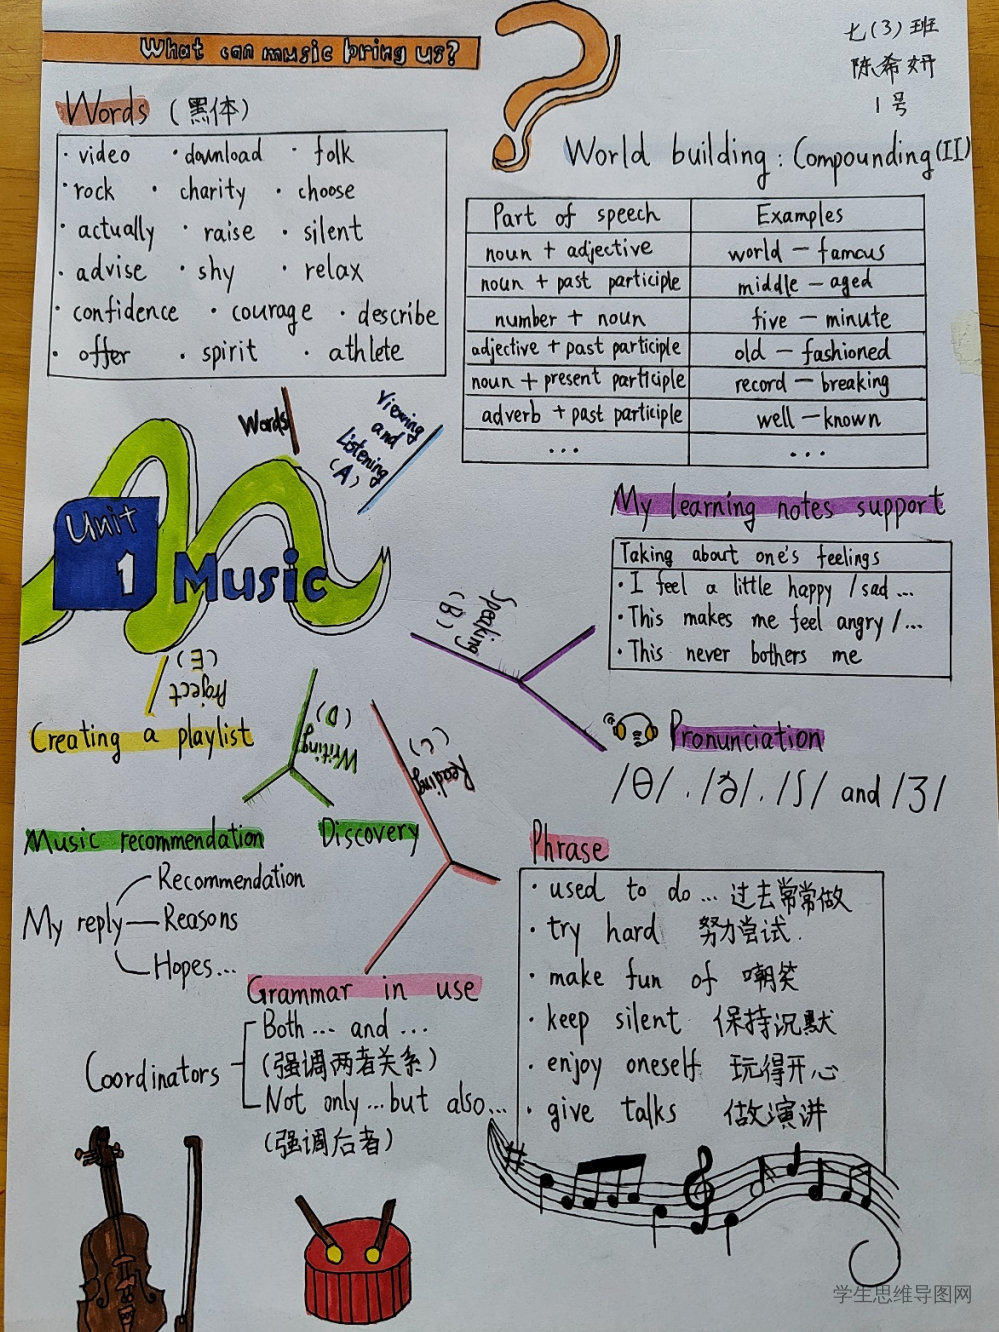 What can music bring us?
七(3)班
陈希妍
1号
Words (黑体)
· video · download · folk
· rock · charity · choose
· actually · raise · silent
· advise · shy · relax
· confidence · courage · describe
· offer · spirit · athlete
World building : Compounding (II)
Part of speech Examples
noun + adjective world — famous
noun + past participle middle — aged
number + noun five — minute
adjective + past participle old — fashioned
noun + present participle record — breaking
adverb + past participle well — known
... ...
Words
Viewing
and
Listening
(A)
Unit
1 Music
My learning notes support
Taking about one's feelings
· I feel a little happy / sad ...
· This makes me feel angry / ...
· This never bothers me
Speaking
(B)
Pronunciation
/θ/ . /ð/ . /ʃ/ and /ʒ/
Project
(E)
Creating a playlist
Writing
(D)
Music recommendation
Discovery
My reply
Recommendation
Reasons
Hopes...
Reading
(C)
Grammar in use
Coordinators
Both ... and ...
(强调两者关系)
Not only ... but also ...
(强调后者)
Phrase
· used to do ... 过去常常做
· try hard 努力尝试.
· make fun of 嘲笑
· keep silent 保持沉默
· enjoy oneself 玩得开心
· give talks 做演讲
学生思维导图网